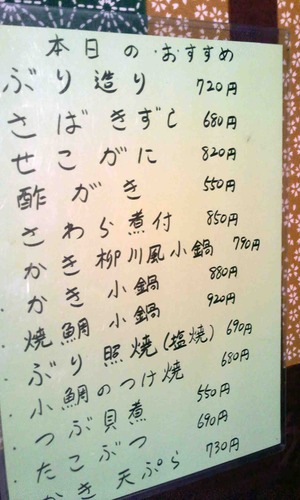 本日のおすすめ
ぶり造り 720円
さばきずし 680円
せこがに 820円
酢がき 550円
さわら煮付 850円
かき柳川風小鍋 790円
かき小鍋 880円
焼鯛小鍋 920円
ぶり照焼(塩焼) 690円
小鯛のつけ焼 680円
つぶ貝煮 550円
たこぶつ 690円
かき天ぷら 730円